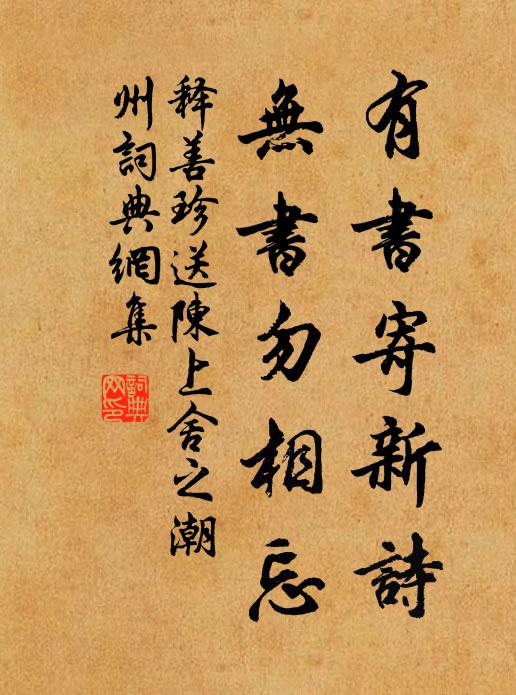 有書寄新詩
無書勿相忘
释善珍送陳上舍之潮
州詞典網集
詞典网印